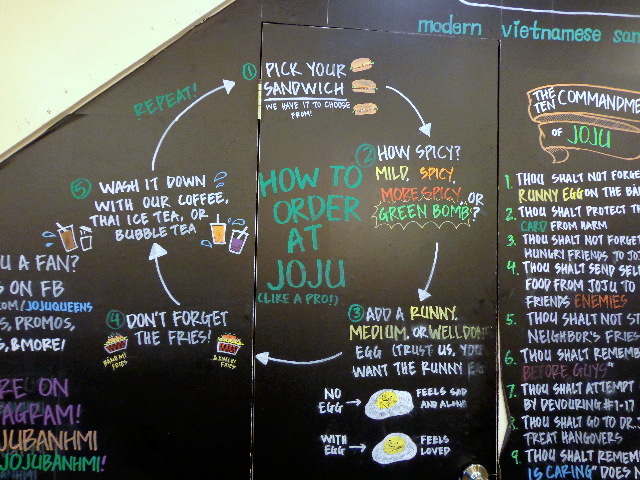 modern vietnamese
① PICK YOUR
SANDWICH
WE HAVE 17 TO CHOOSE
FROM!
② HOW SPICY?
MILD, SPICY,
MORE SPICY, OR
GREEN BOMB?
HOW TO
ORDER
AT
JOJU
(LIKE A PRO!)
③ ADD A RUNNY,
MEDIUM, OR WELL DONE
EGG (TRUST US, YOU
WANT THE RUNNY EGG
NO
EGG → FEELS SAD
AND ALONE
WITH
EGG → FEELS
LOVED
④ DON'T FORGET
THE FRIES!
BANH MI
FRIES
KIMCHI
FRIES
⑤ WASH IT DOWN
WITH OUR COFFEE,
THAI ICE TEA, OR
BUBBLE TEA
REPEAT!
U A FAN?
S ON FB
COM/JOJUQUEENS
S, PROMOS,
S, & MORE!
RE ON
AGRAM!
JUBANHMI
JOJUBANHMI!
THE
TEN COMMANDME
OF JOJU
1. THOU SHALT NOT FORGE
RUNNY EGG ON THE BA
2. THOU SHALT PROTECT TH
CARD FROM HARM
3. THOU SHALT NOT FORGET
HUNGRY FRIENDS TO JO
4. THOU SHALT SEND SEL
FOOD FROM JOJU TO
FRIENDS ENEMIES
5. THOU SHALT NOT ST
NEIGHBOR'S FRIES
6. THOU SHALT REMEMB
BEFORE GUYS"
7. THOU SHALT ATTEMPT
BY DEVOURING #1-17
8. THOU SHALT GO TO DR. J
TREAT HANGOVERS
9. THOU SHALT REMEM
IS CARING" DOES N